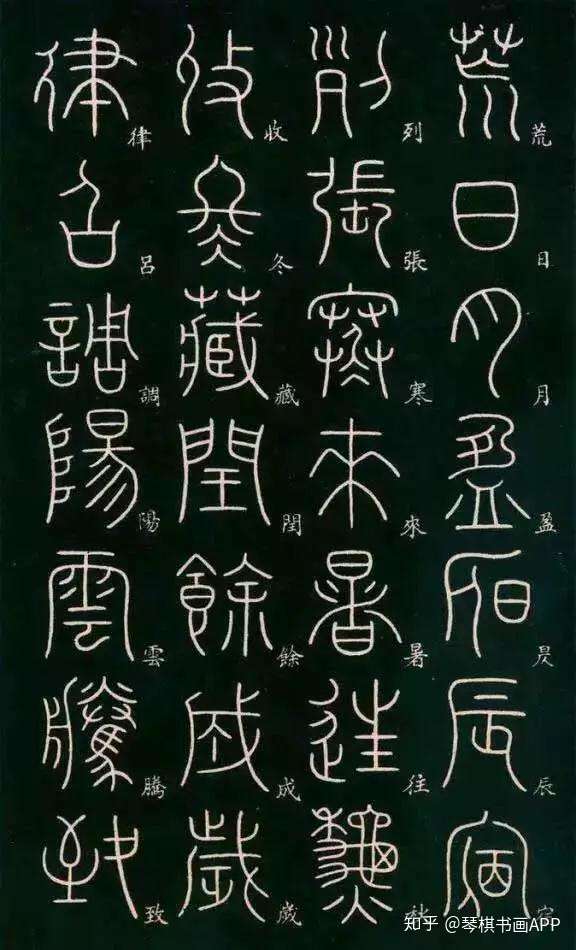 荒日月盈昃辰宿
列張寒來暑往秋
收冬藏閏餘成歲
律呂調陽雲騰致
知乎 @琴棋书画APP